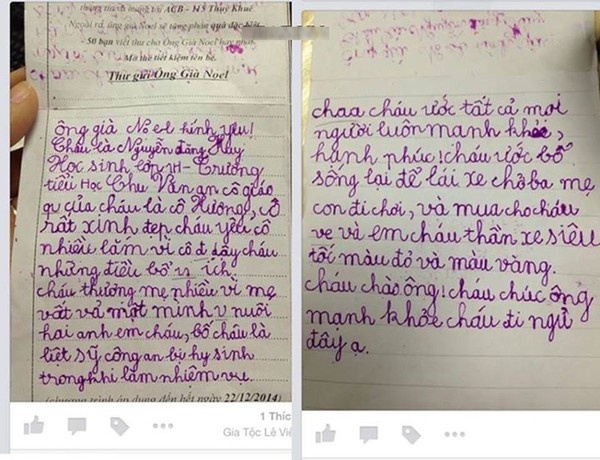 thông tin và mang tới ACB - 115 Thụy Khuê.
Ngoài ra, ông già Noel sẽ tặng phần quà đặc biệt
- 50 bạn viết thư cho Ông Già Noel hay nhất.
Mở thẻ tiết kiệm tên bé.
Thư gửi Ông Già Noel
ông già Noel kính yêu!
Cháu là Nguyễn đăng Huy
Học sinh lớp 1H - Trường
tiểu Học Chu Văn an cô giáo
của cháu là cô Hương, cô
rất xinh đẹp cháu yêu cô
nhiều lắm vì cô dậy cháu
những điều bổ ích.
cháu thương mẹ nhiều vì mẹ
vất vả một mình nuôi
hai anh em cháu, bố cháu là
liệt sỹ công an bị hy sinh
trong khi làm nhiệm vụ.
(chương trình áp dụng đến hết ngày 22/12/2014)
1 Thíc
Gia Tộc Lê Viê
cháu ước tất cả mọi
người luôn mạnh khỏe,
hạnh phúc! cháu ước bố
sống lại để lái xe chở ba mẹ
con đi chơi, và mua cho cháu
và em cháu thần xe siêu
tốc màu đỏ và màu vàng.
cháu chào ông! cháu chúc ông
mạnh khỏe cháu đi ngủ
đây ạ.